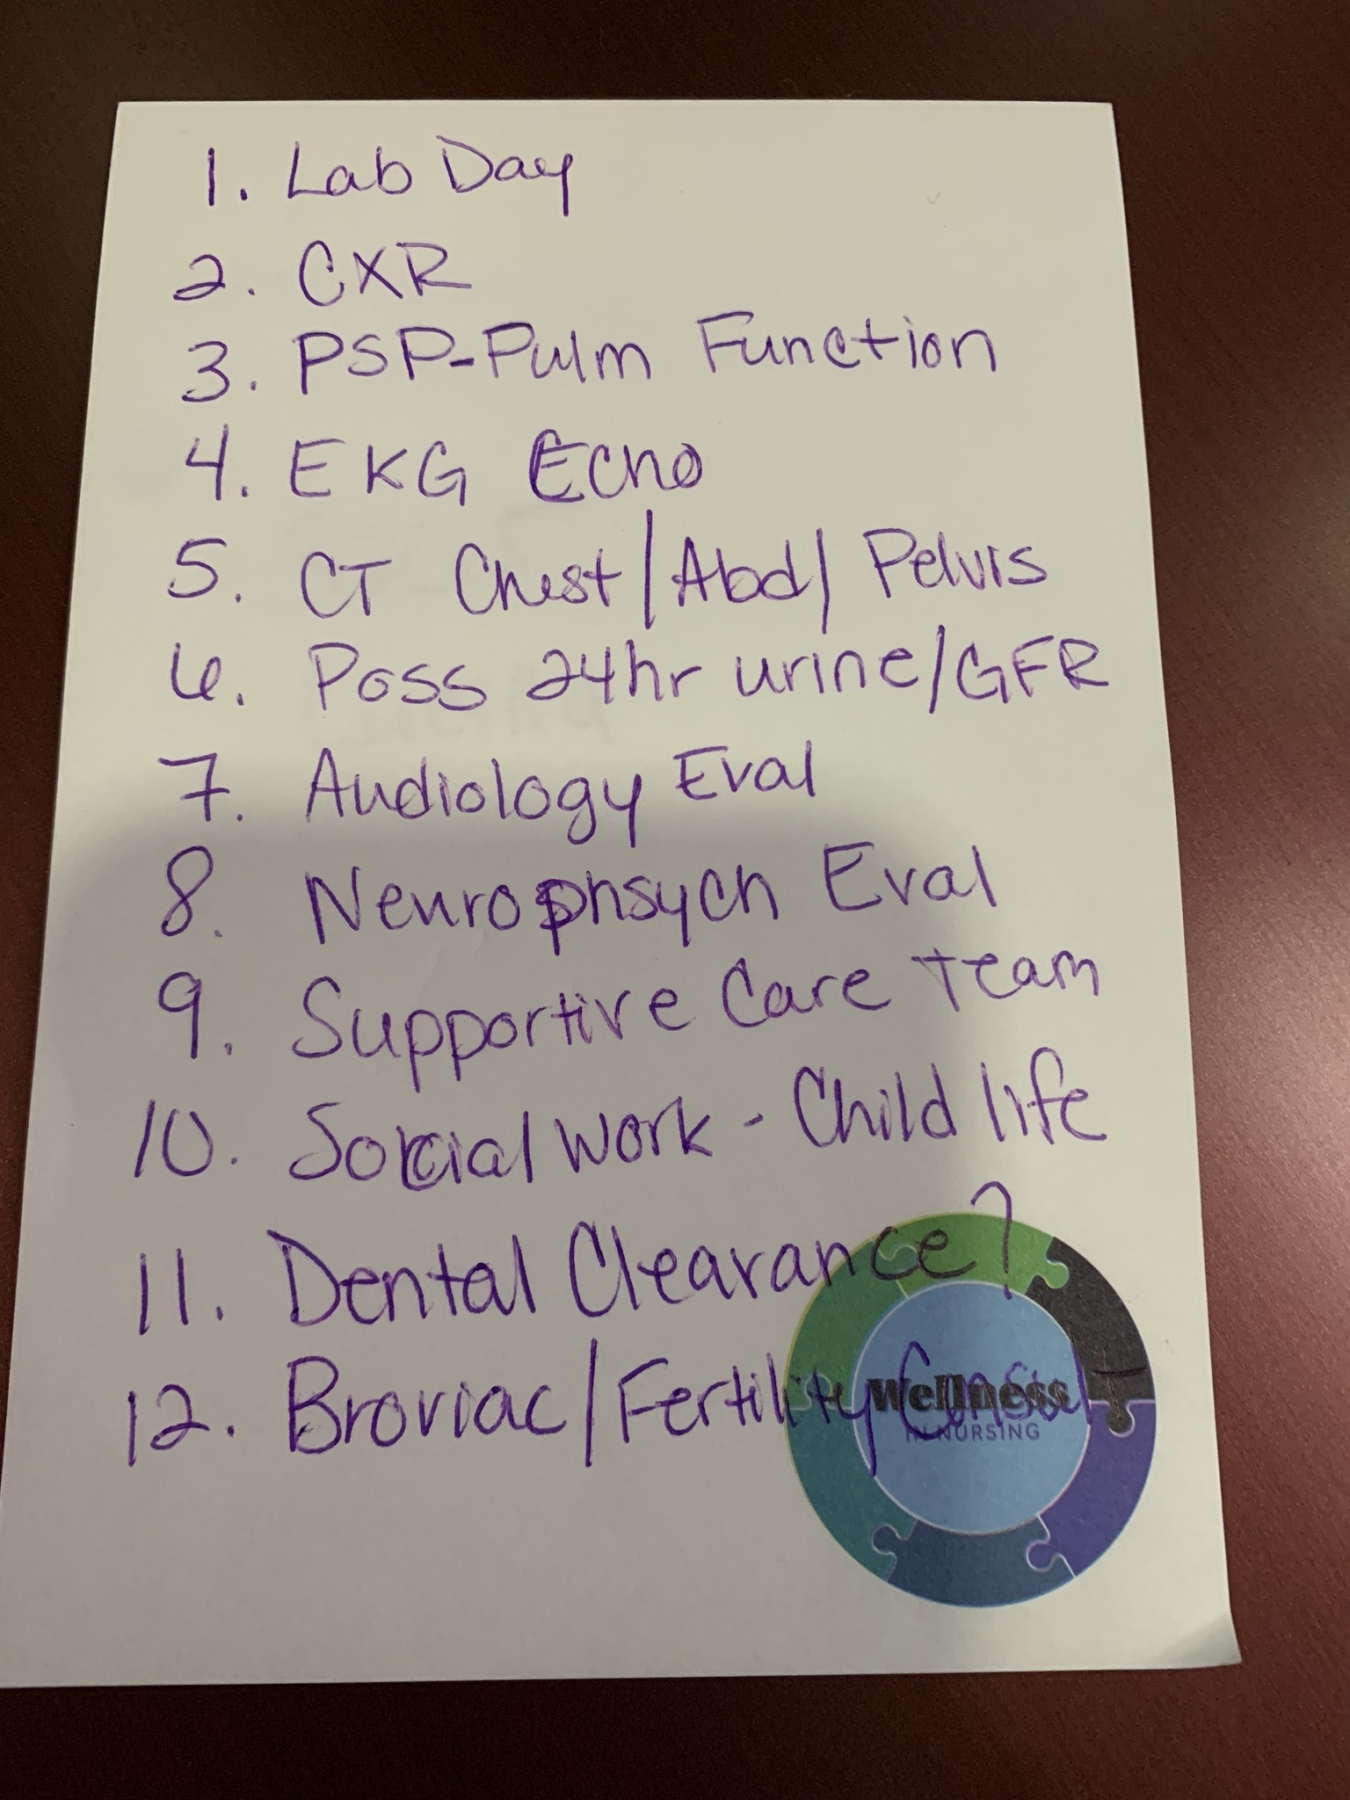 1. Lab Day
2. CXR
3. PSP-Pulm Function
4. EKG Echo
5. CT Chest/Abd/Pelvis
6. Poss 24hr urine/GFR
7. Audiology Eval
8. Neurophsych Eval
9. Supportive Care Team
10. Social Work - Child life
11. Dental Clearance?
12. Broviac/Fertility Consul
Wellness
IN NURSING